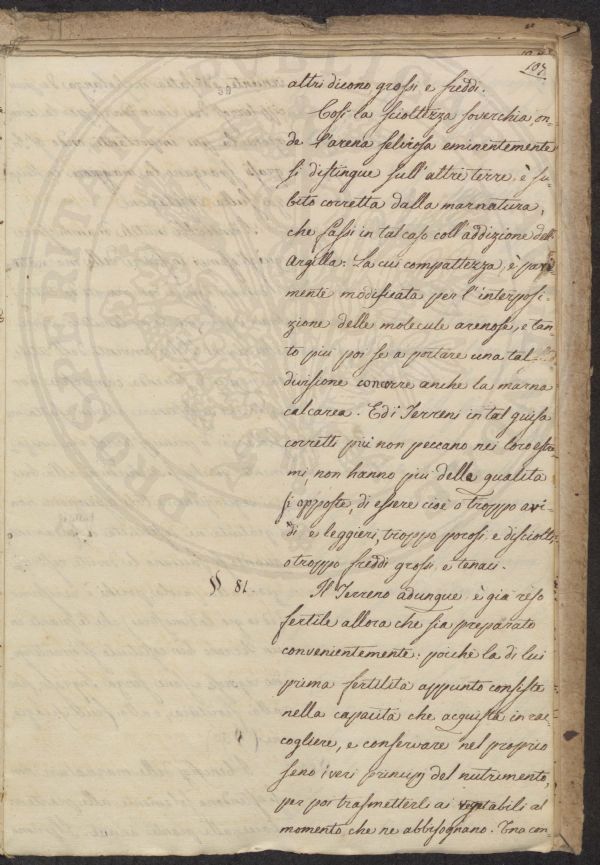 107
altri dicono grossi e freddi.
Così la scioltezza soverchia, on-
de l'arena selciosa eminentemente
si distingue sull'altre terre, è su-
bito corretta dalla marnatura,
che fassi in tal caso coll'addizione dell'
Argilla. La cui compattezza, è pari
mente modificata per l'interposi-
zione delle molecule arenose, e tan-
to più poi se a portare una tal
divisione concorre anche la marna
calcarea. Ed i Terreni in tal guisa
corretti più non peccano nei loro estre
mi, non hanno più delle qualità
sì opposte, di essere cioè o troppo avi-
di e leggieri, troppo porosi e disciolti,
o troppo freddi grossi, e tenaci.
§§ 81. Il Terreno adunque è già reso
fertile allora che sia preparato
convenientemente: poichè la di lui
prima fertilità appunto consiste
nella capacità che acquista in rac-
cogliere, e conservare nel proprio
seno i veri principj del nutrimento
per poi trasmetterli ai vegetabili al
momento che ne abbisognano. Uno con-